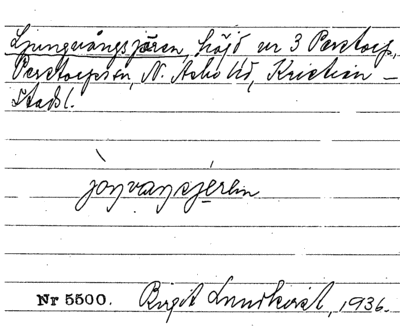 Ljungvångsjären, höjd vr 3 Perstorp,
Perstorps sn, N. Åsbo hd, Kristian-
stads l.
jòŋvaŋsjæ̀ren
Nr 5500. Birgit Lundkvist, 1936.